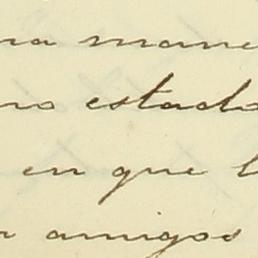 na mane
no estado
en que l
n amigos